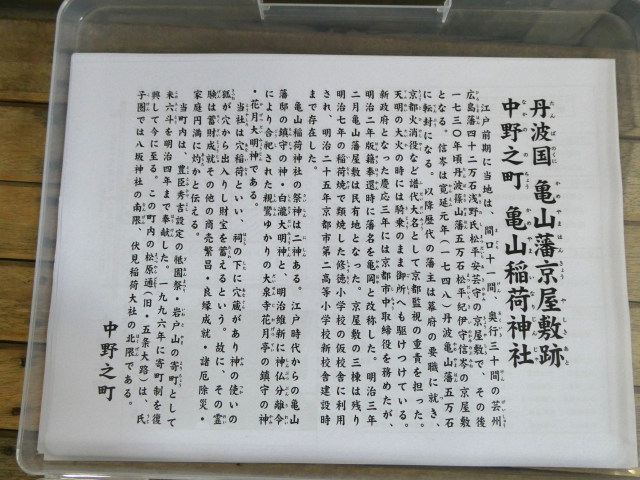 丹波国 亀山藩京屋敷跡
中野之町 亀山稲荷神社
江戸前期に当地は、間口十一間、奥行三十間の芸州
広島藩四十二万石浅野氏松平安芸守の京屋敷で、その後
一七三〇年頃丹波篠山藩五万石松平紀伊守信岑の京屋敷
となる。信岑は寛延元年(一七四八)丹波亀山藩五万石
に転封になる。以降歴代の藩主は幕府の要職に就き、
京都火消役など譜代大名として京都監視の重責を担った。
天明の大火の時には騎乗のまま御所へも駆けつけている。
新政府となった慶応三年には京都市中取締役を務めたが、
明治二年版籍奉還時に藩名を亀岡と改称した。明治三年
二月亀山藩屋敷は民有地となった。京屋敷の三棟は残り
明治七年の稲荷焼で類焼した修徳小学校の仮校舎に利用
され、明治二十五年京都市第二高等小学校新校舎建設時
まで存在した。
亀山稲荷神社の祭神は二神ある。江戸時代からの亀山
藩邸の鎮守の神・白瀧大明神と、明治維新に神仏分離令
により合祀された親鸞ゆかりの大泉寺花月亭の鎮守の神
・花月大明神である。
当社は穴稲荷といい、祠の下に穴蔵があり神の使いの
狐が穴から出入りし財宝を蓄えるという。故に、その霊
験は蓄財成就その他の商売繁昌・良縁成就・諸厄除災・
家庭円満に灼かと伝える。
当町内は、豊臣秀吉設定の祇園祭・岩戸山の寄町として
米六斗を明治四年まで奉献した。一九九六年に寄町制を復
興して今に至る。この町内の松原通(旧・五条大路)は、氏
子圏では八坂神社の南限、伏見稲荷大社の北限である。
中野之町